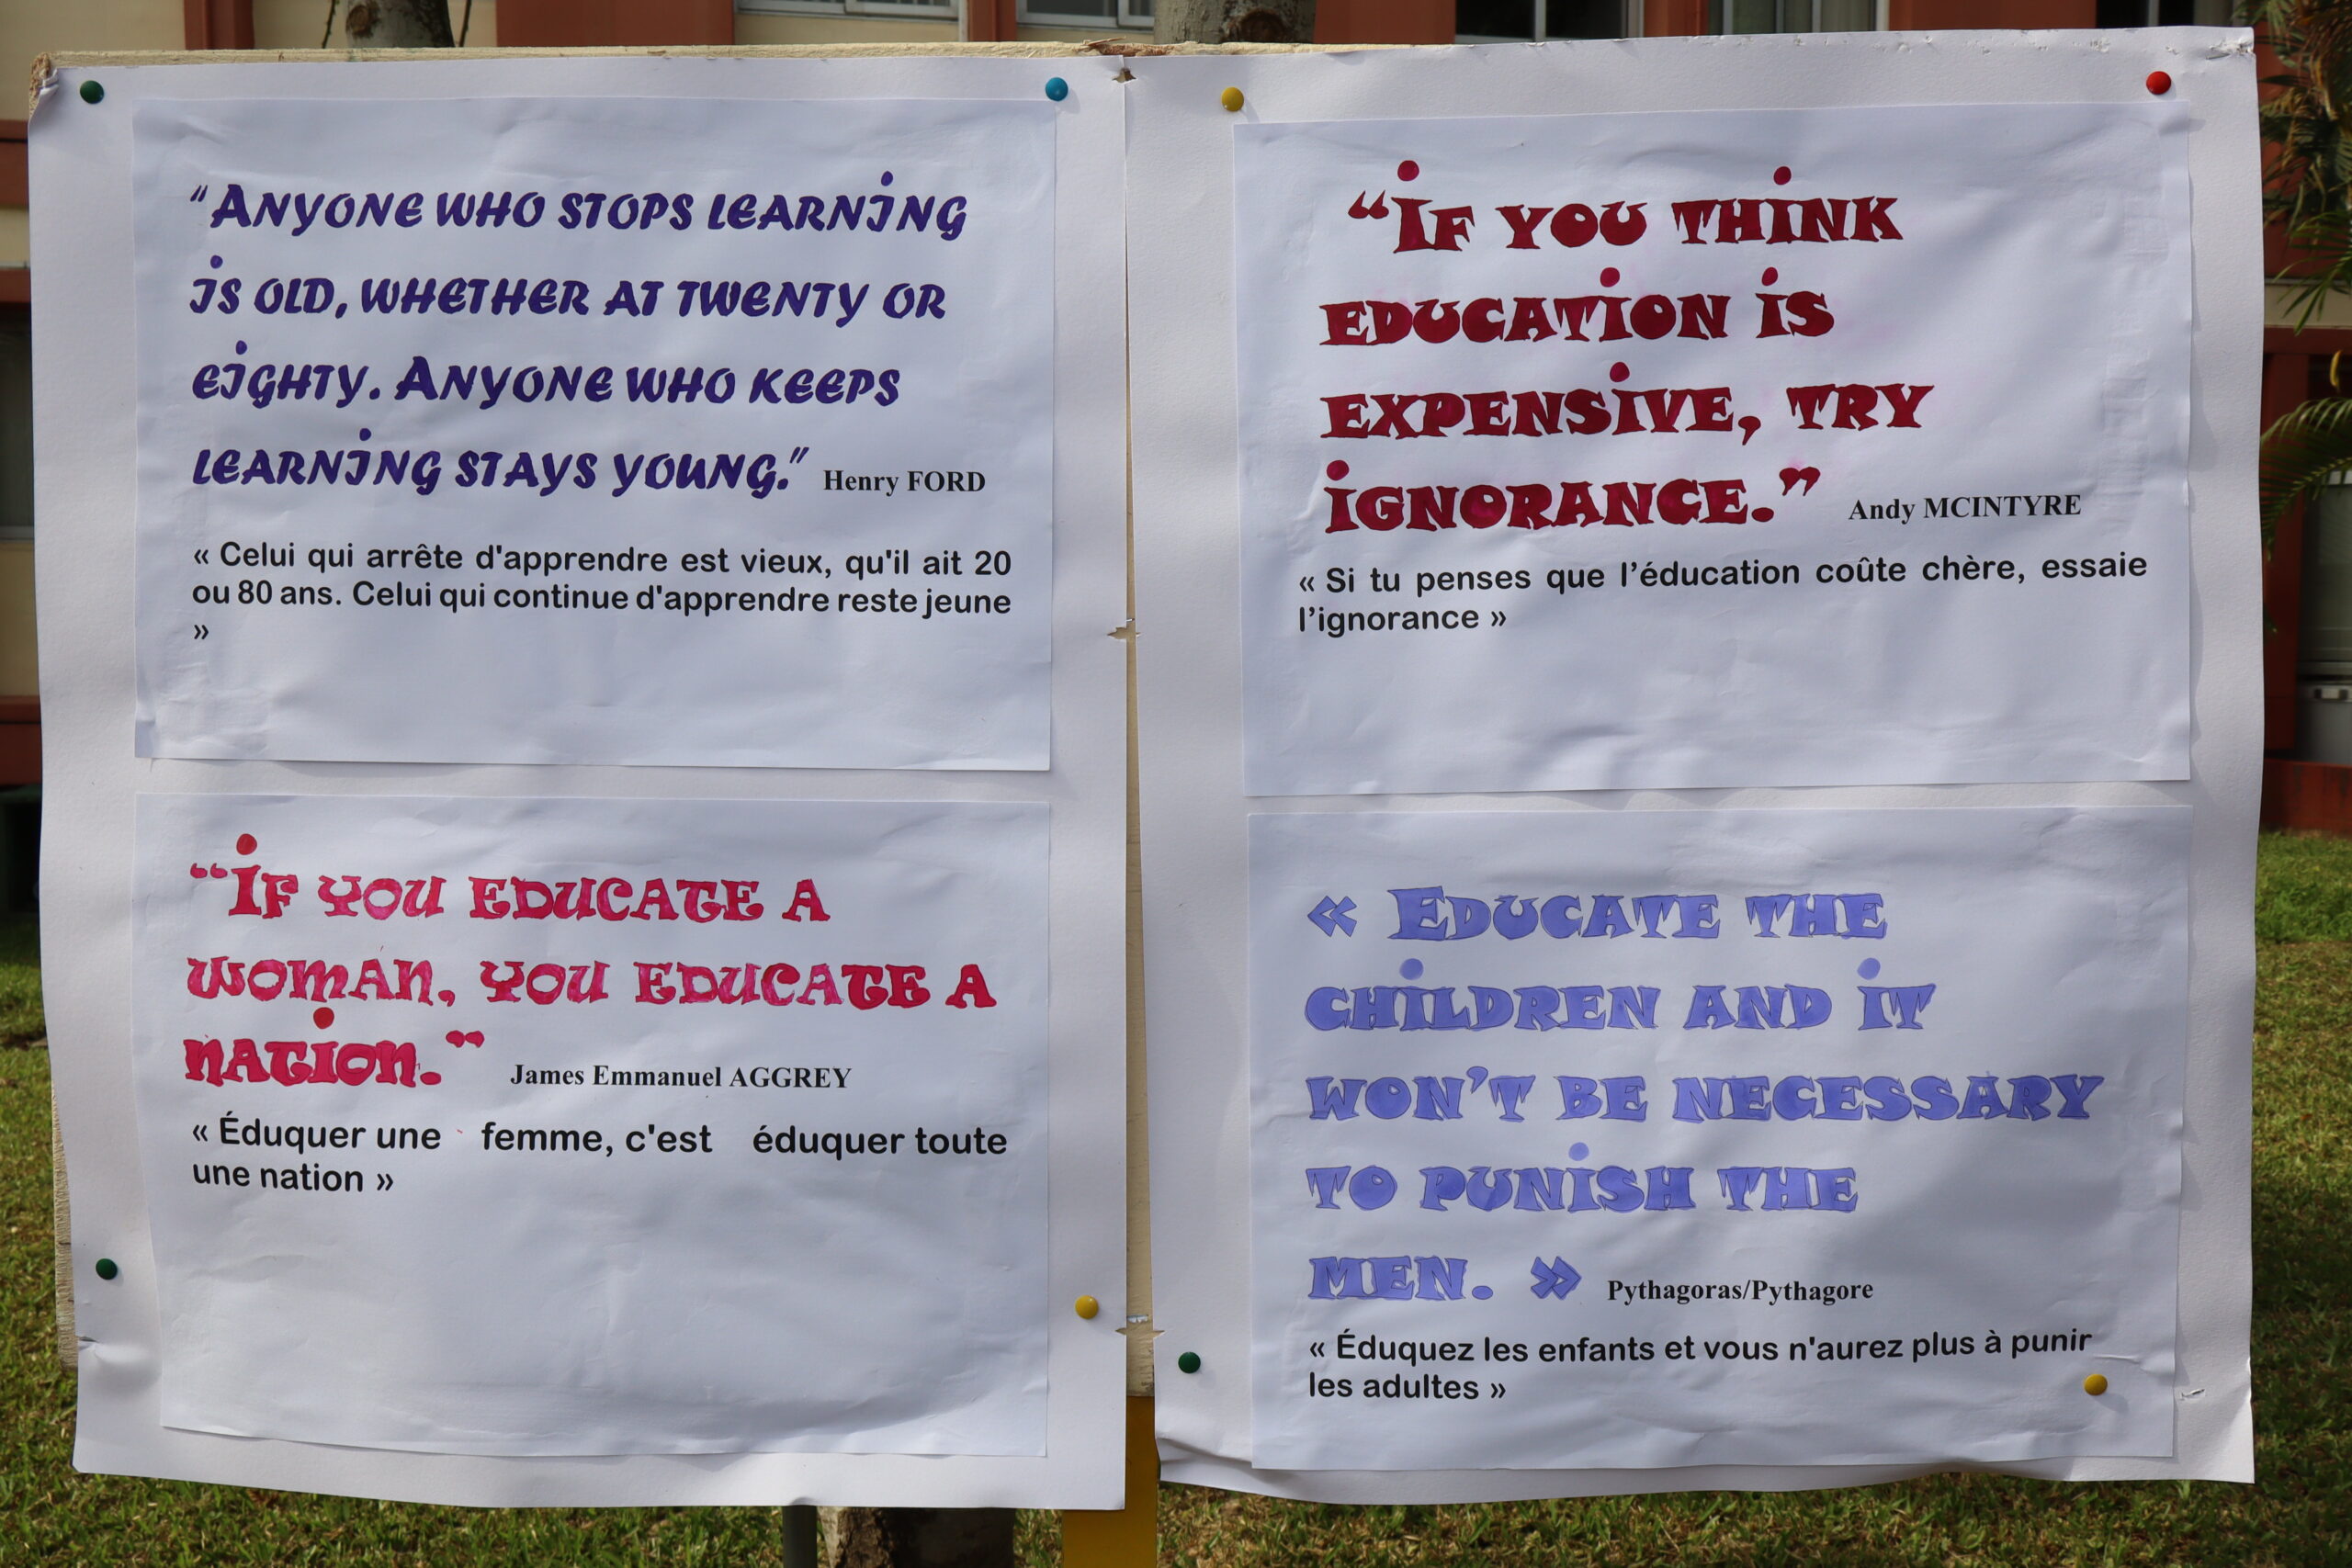 "Anyone who stops learning
is old, whether at twenty or
eighty. Anyone who keeps
learning stays young." Henry FORD
« Celui qui arrête d'apprendre est vieux, qu'il ait 20
ou 80 ans. Celui qui continue d'apprendre reste jeune
»
"If you educate a
woman, you educate a
nation." James Emmanuel AGGREY
« Éduquer une femme, c'est éduquer toute
une nation »
“If you think
education is
expensive, try
ignorance.” Andy MCINTYRE
« Si tu penses que l’éducation coûte chère, essaie
l’ignorance »
« Educate the
children and it
won’t be necessary
to punish the
men. » Pythagoras/Pythagore
« Éduquez les enfants et vous n'aurez plus à punir
les adultes »